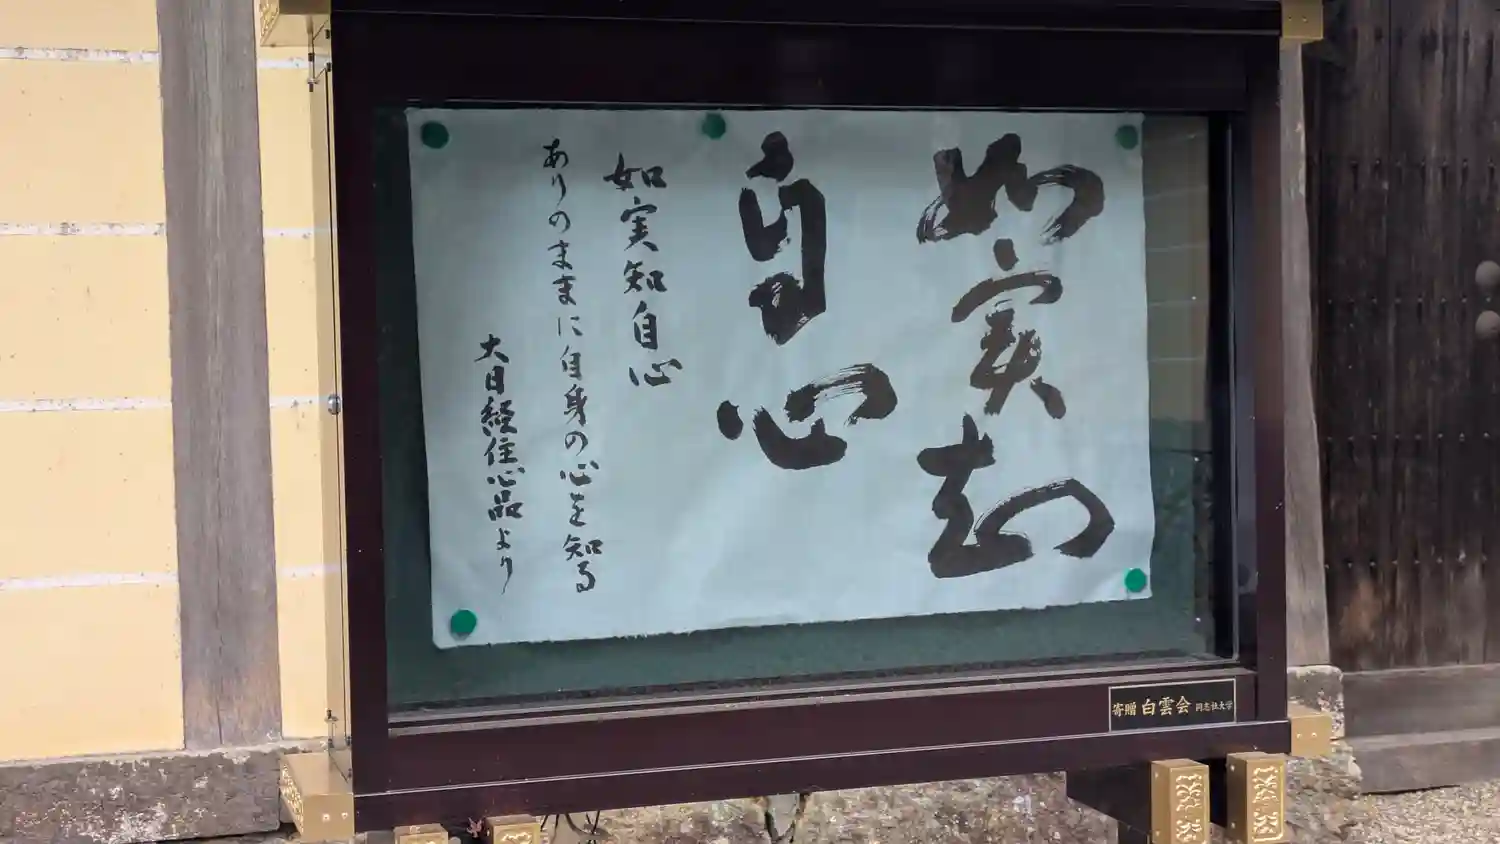 如実知
自心
如実知自心
ありのままに自身の心を知る
大日経住心品より
寄贈 白雲会 同志社大学